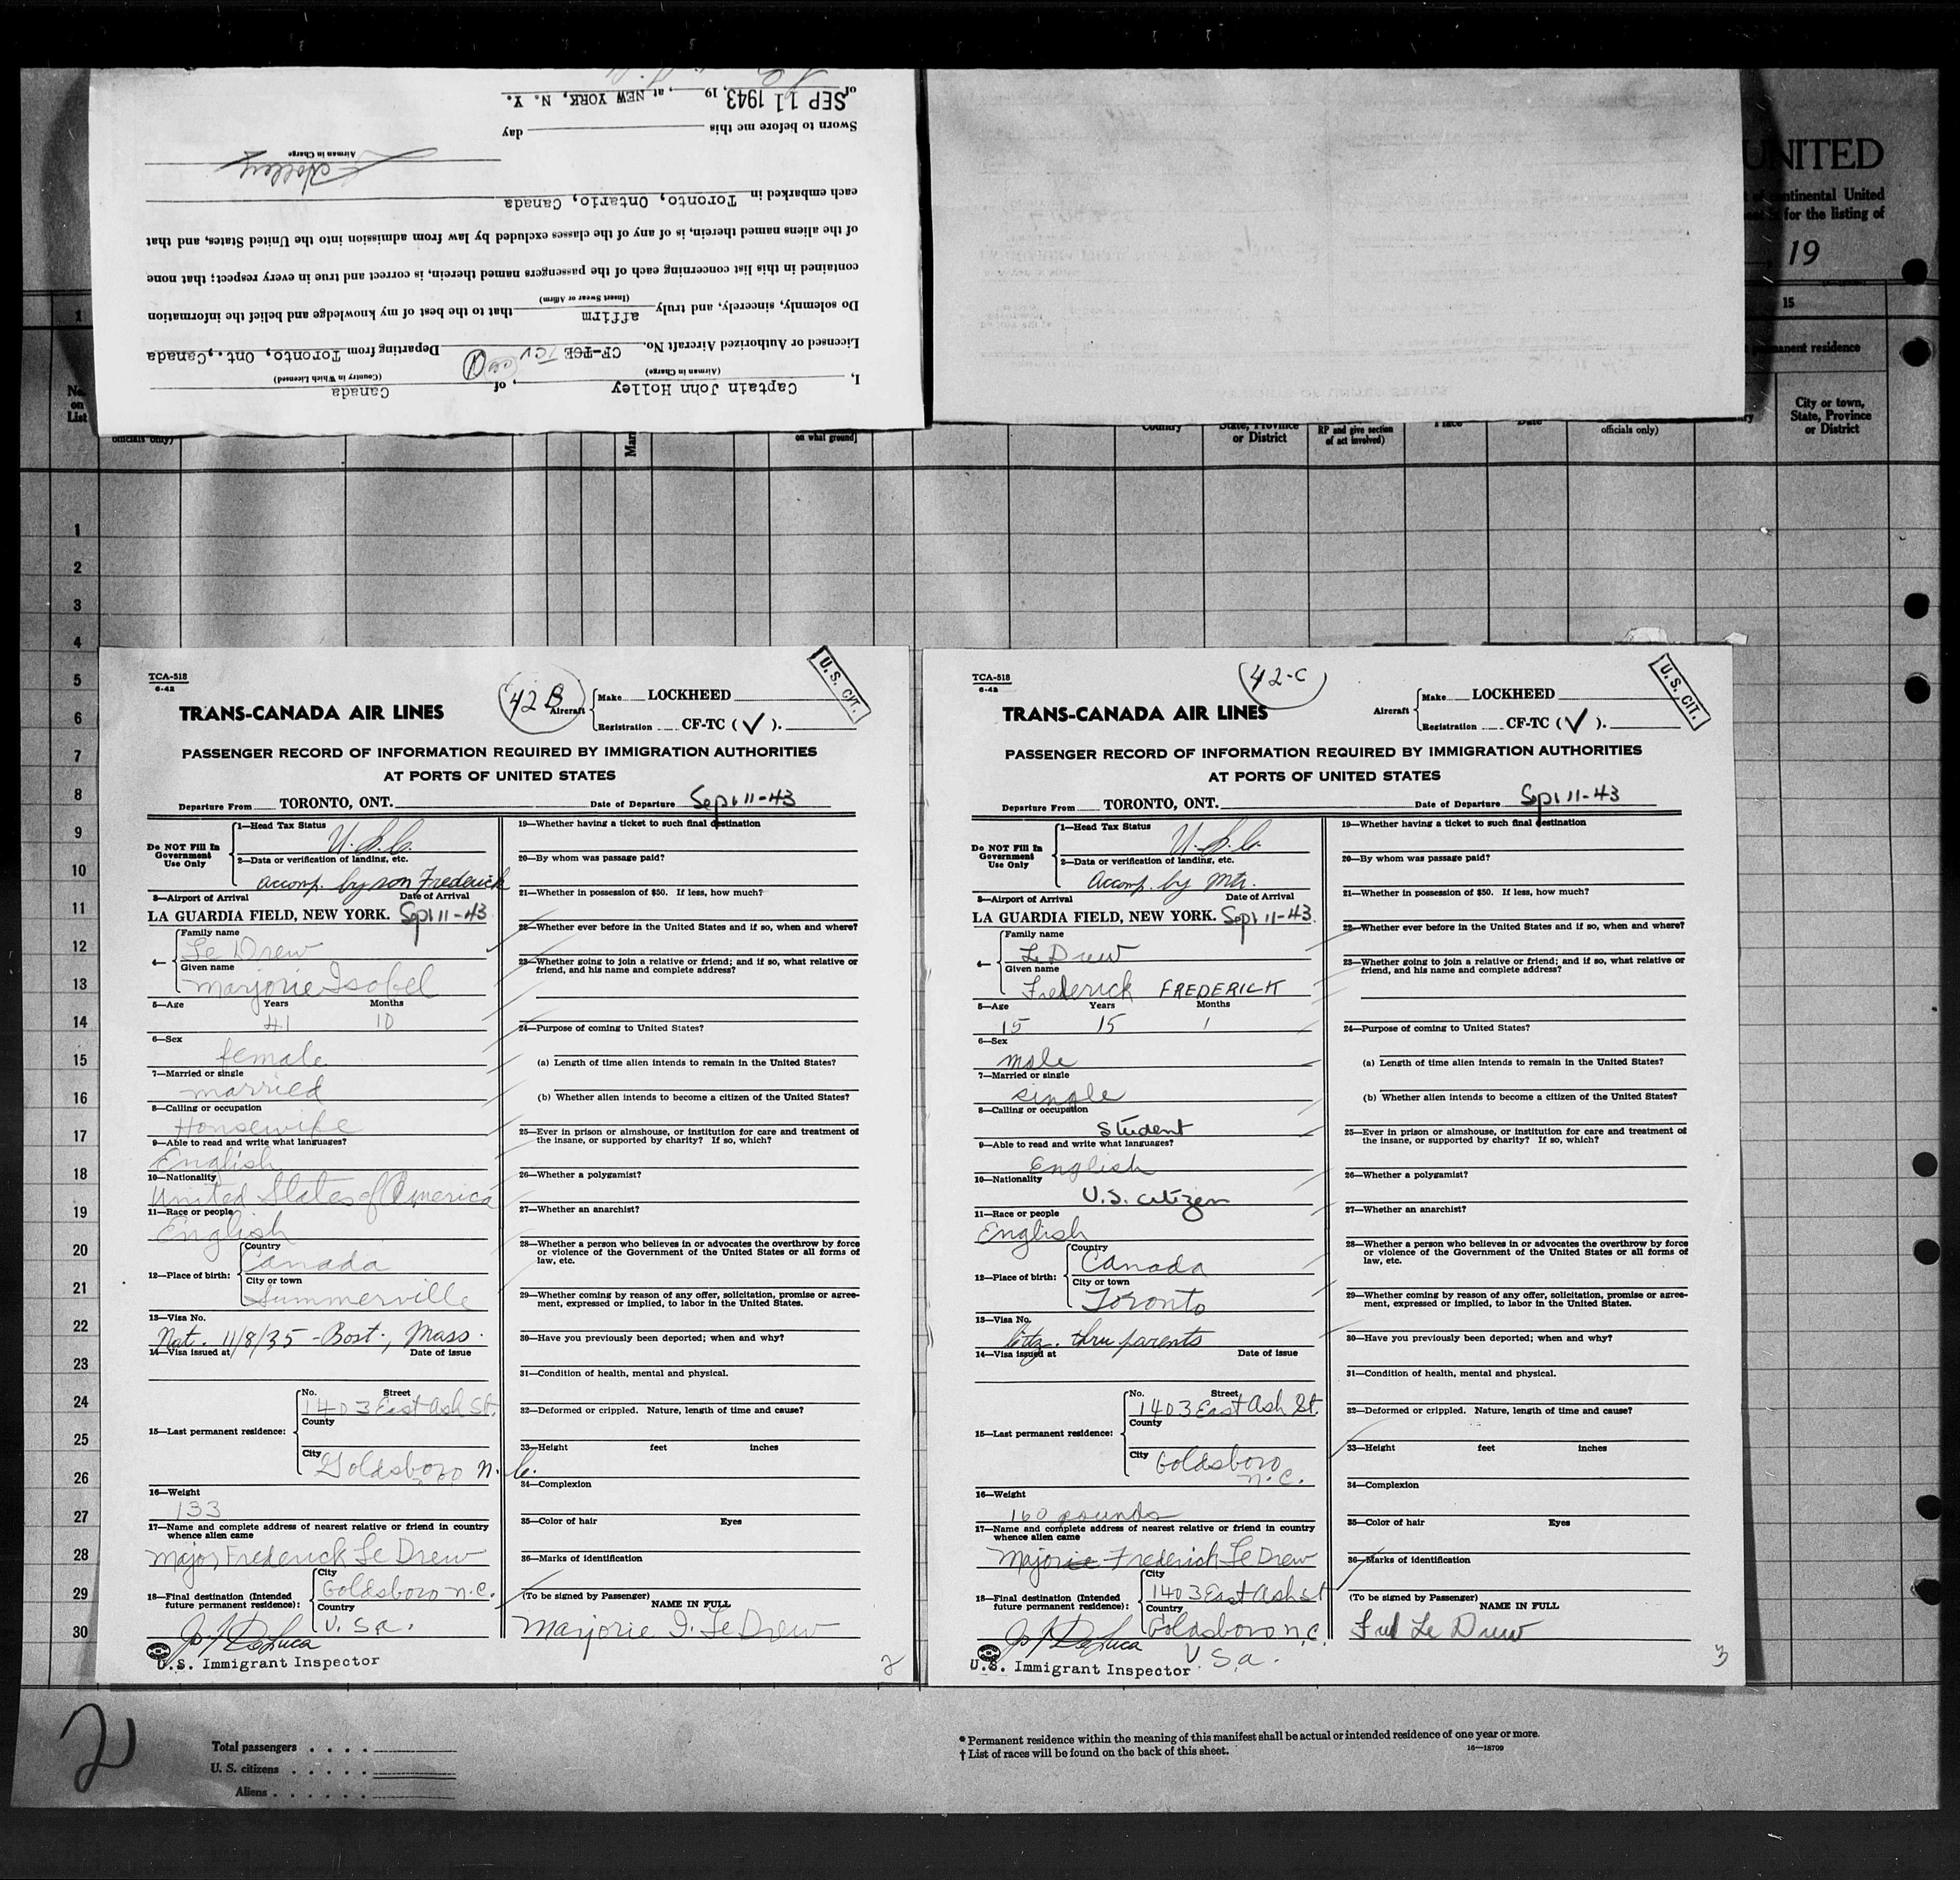 I, Captain John Holley, of Canada
(Airman in Charge) (Country in Which Licensed)
Licensed or Authorized Aircraft No. CF-TCE TCV Departing from Toronto, Ont., Canada
Do solemnly, sincerely, and truly affirm that to the best of my knowledge and belief the information
(Insert Swear or Affirm)
contained in this list concerning each of the passengers named therein, is correct and true in every respect; that none
of the aliens named therein, is of any of the classes excluded by law from admission into the United States, and that
each embarked in Toronto, Ontario, Canada
Holley
Airman in Charge
Sworn to before me this day
of SEP 11 1943, 19 , at NEW YORK, N. Y.
UNITED
t of continental United
for the listing of
19
15
1
permanent residence
No. on List
City or town, State, Province or District
officials only)
on what ground]
Country
State, Province or District
RP and give section of act involved)
Place
Date
officials only)
1
2
3
4
5
6
7
8
9
10
11
12
13
14
15
16
17
18
19
20
21
22
23
24
25
26
27
28
29
30
TCA-518
6-42
42 B
U. S. CIT.
TRANS-CANADA AIR LINES
Aircraft
Make LOCKHEED
Registration CF-TC ( V ).
PASSENGER RECORD OF INFORMATION REQUIRED BY IMMIGRATION AUTHORITIES
AT PORTS OF UNITED STATES
Departure From TORONTO, ONT. Date of Departure Sept 11-43
Do NOT Fill In Government Use Only
1—Head Tax Status
U.S.C.
2—Data or verification of landing, etc.
accomp. by son Frederick
3—Airport of Arrival Date of Arrival
LA GUARDIA FIELD, NEW YORK. Sept 11-43
4— Family name
Le Drew
Given name
Marjorie Isobel
5—Age Years Months
41 10
6—Sex
female
7—Married or single
married
8—Calling or occupation
Housewife
9—Able to read and write what languages?
English
10—Nationality
United States of America
11—Race or people
English
12—Place of birth: Country
Canada
City or town
Summerville
13—Visa No.
Nat. 11/8/35 - Bost., Mass.
14—Visa issued at Date of issue
15—Last permanent residence: No. Street
1403 East Ash St.
County
City
Goldsboro N.C.
16—Weight
133
17—Name and complete address of nearest relative or friend in country
whence alien came
Major Frederick Le Drew
18—Final destination (Intended
future permanent residence):
City
Goldsboro N.C.
Country
U.S.a.
U.S. Immigrant Inspector
19—Whether having a ticket to such final destination
20—By whom was passage paid?
21—Whether in possession of $50. If less, how much?
22—Whether ever before in the United States and if so, when and where?
23—Whether going to join a relative or friend; and if so, what relative or
friend, and his name and complete address?
24—Purpose of coming to United States?
(a) Length of time alien intends to remain in the United States?
(b) Whether alien intends to become a citizen of the United States?
25—Ever in prison or almshouse, or institution for care and treatment of
the insane, or supported by charity? If so, which?
26—Whether a polygamist?
27—Whether an anarchist?
28—Whether a person who believes in or advocates the overthrow by force
or violence of the Government of the United States or all forms of
law, etc.
29—Whether coming by reason of any offer, solicitation, promise or agree-
ment, expressed or implied, to labor in the United States.
30—Have you previously been deported; when and why?
31—Condition of health, mental and physical.
32—Deformed or crippled. Nature, length of time and cause?
33—Height feet inches
34—Complexion
35—Color of hair Eyes
36—Marks of identification
(To be signed by Passenger)
NAME IN FULL
Marjorie I. Le Drew
2
TCA-518
6-42
42-C
U. S. CIT.
TRANS-CANADA AIR LINES
Aircraft
Make LOCKHEED
Registration CF-TC ( V ).
PASSENGER RECORD OF INFORMATION REQUIRED BY IMMIGRATION AUTHORITIES
AT PORTS OF UNITED STATES
Departure From TORONTO, ONT. Date of Departure Sept 11-43
Do NOT Fill In Government Use Only
1—Head Tax Status
U.S.C.
2—Data or verification of landing, etc.
Accomp. by Mtr.
3—Airport of Arrival Date of Arrival
LA GUARDIA FIELD, NEW YORK. Sept 11-43.
4— Family name
Le Drew
Given name
Frederick FREDERICK
5—Age Years Months
15 15 1
6—Sex
male
7—Married or single
single
8—Calling or occupation
Student
9—Able to read and write what languages?
English
10—Nationality
U.S. citizen
11—Race or people
English
12—Place of birth: Country
Canada
City or town
Toronto
13—Visa No.
Citz. thru parents
14—Visa issued at Date of issue
15—Last permanent residence: No. Street
1403 East Ash St.
County
City
Goldsboro
N.C.
16—Weight
160 pounds
17—Name and complete address of nearest relative or friend in country
whence alien came
Majorie Frederick Le Drew
18—Final destination (Intended
future permanent residence):
City
1403 East Ash St
Country
Goldsboro N.C.
U.S.a.
U.S. Immigrant Inspector
19—Whether having a ticket to such final destination
20—By whom was passage paid?
21—Whether in possession of $50. If less, how much?
22—Whether ever before in the United States and if so, when and where?
23—Whether going to join a relative or friend; and if so, what relative or
friend, and his name and complete address?
24—Purpose of coming to United States?
(a) Length of time alien intends to remain in the United States?
(b) Whether alien intends to become a citizen of the United States?
25—Ever in prison or almshouse, or institution for care and treatment of
the insane, or supported by charity? If so, which?
26—Whether a polygamist?
27—Whether an anarchist?
28—Whether a person who believes in or advocates the overthrow by force
or violence of the Government of the United States or all forms of
law, etc.
29—Whether coming by reason of any offer, solicitation, promise or agree-
ment, expressed or implied, to labor in the United States.
30—Have you previously been deported; when and why?
31—Condition of health, mental and physical.
32—Deformed or crippled. Nature, length of time and cause?
33—Height feet inches
34—Complexion
35—Color of hair Eyes
36—Marks of identification
(To be signed by Passenger)
NAME IN FULL
Fred Le Drew
3
2
Total passengers
U. S. citizens
Aliens
* Permanent residence within the meaning of this manifest shall be actual or intended residence of one year or more.
† List of races will be found on the back of this sheet.
16—18709